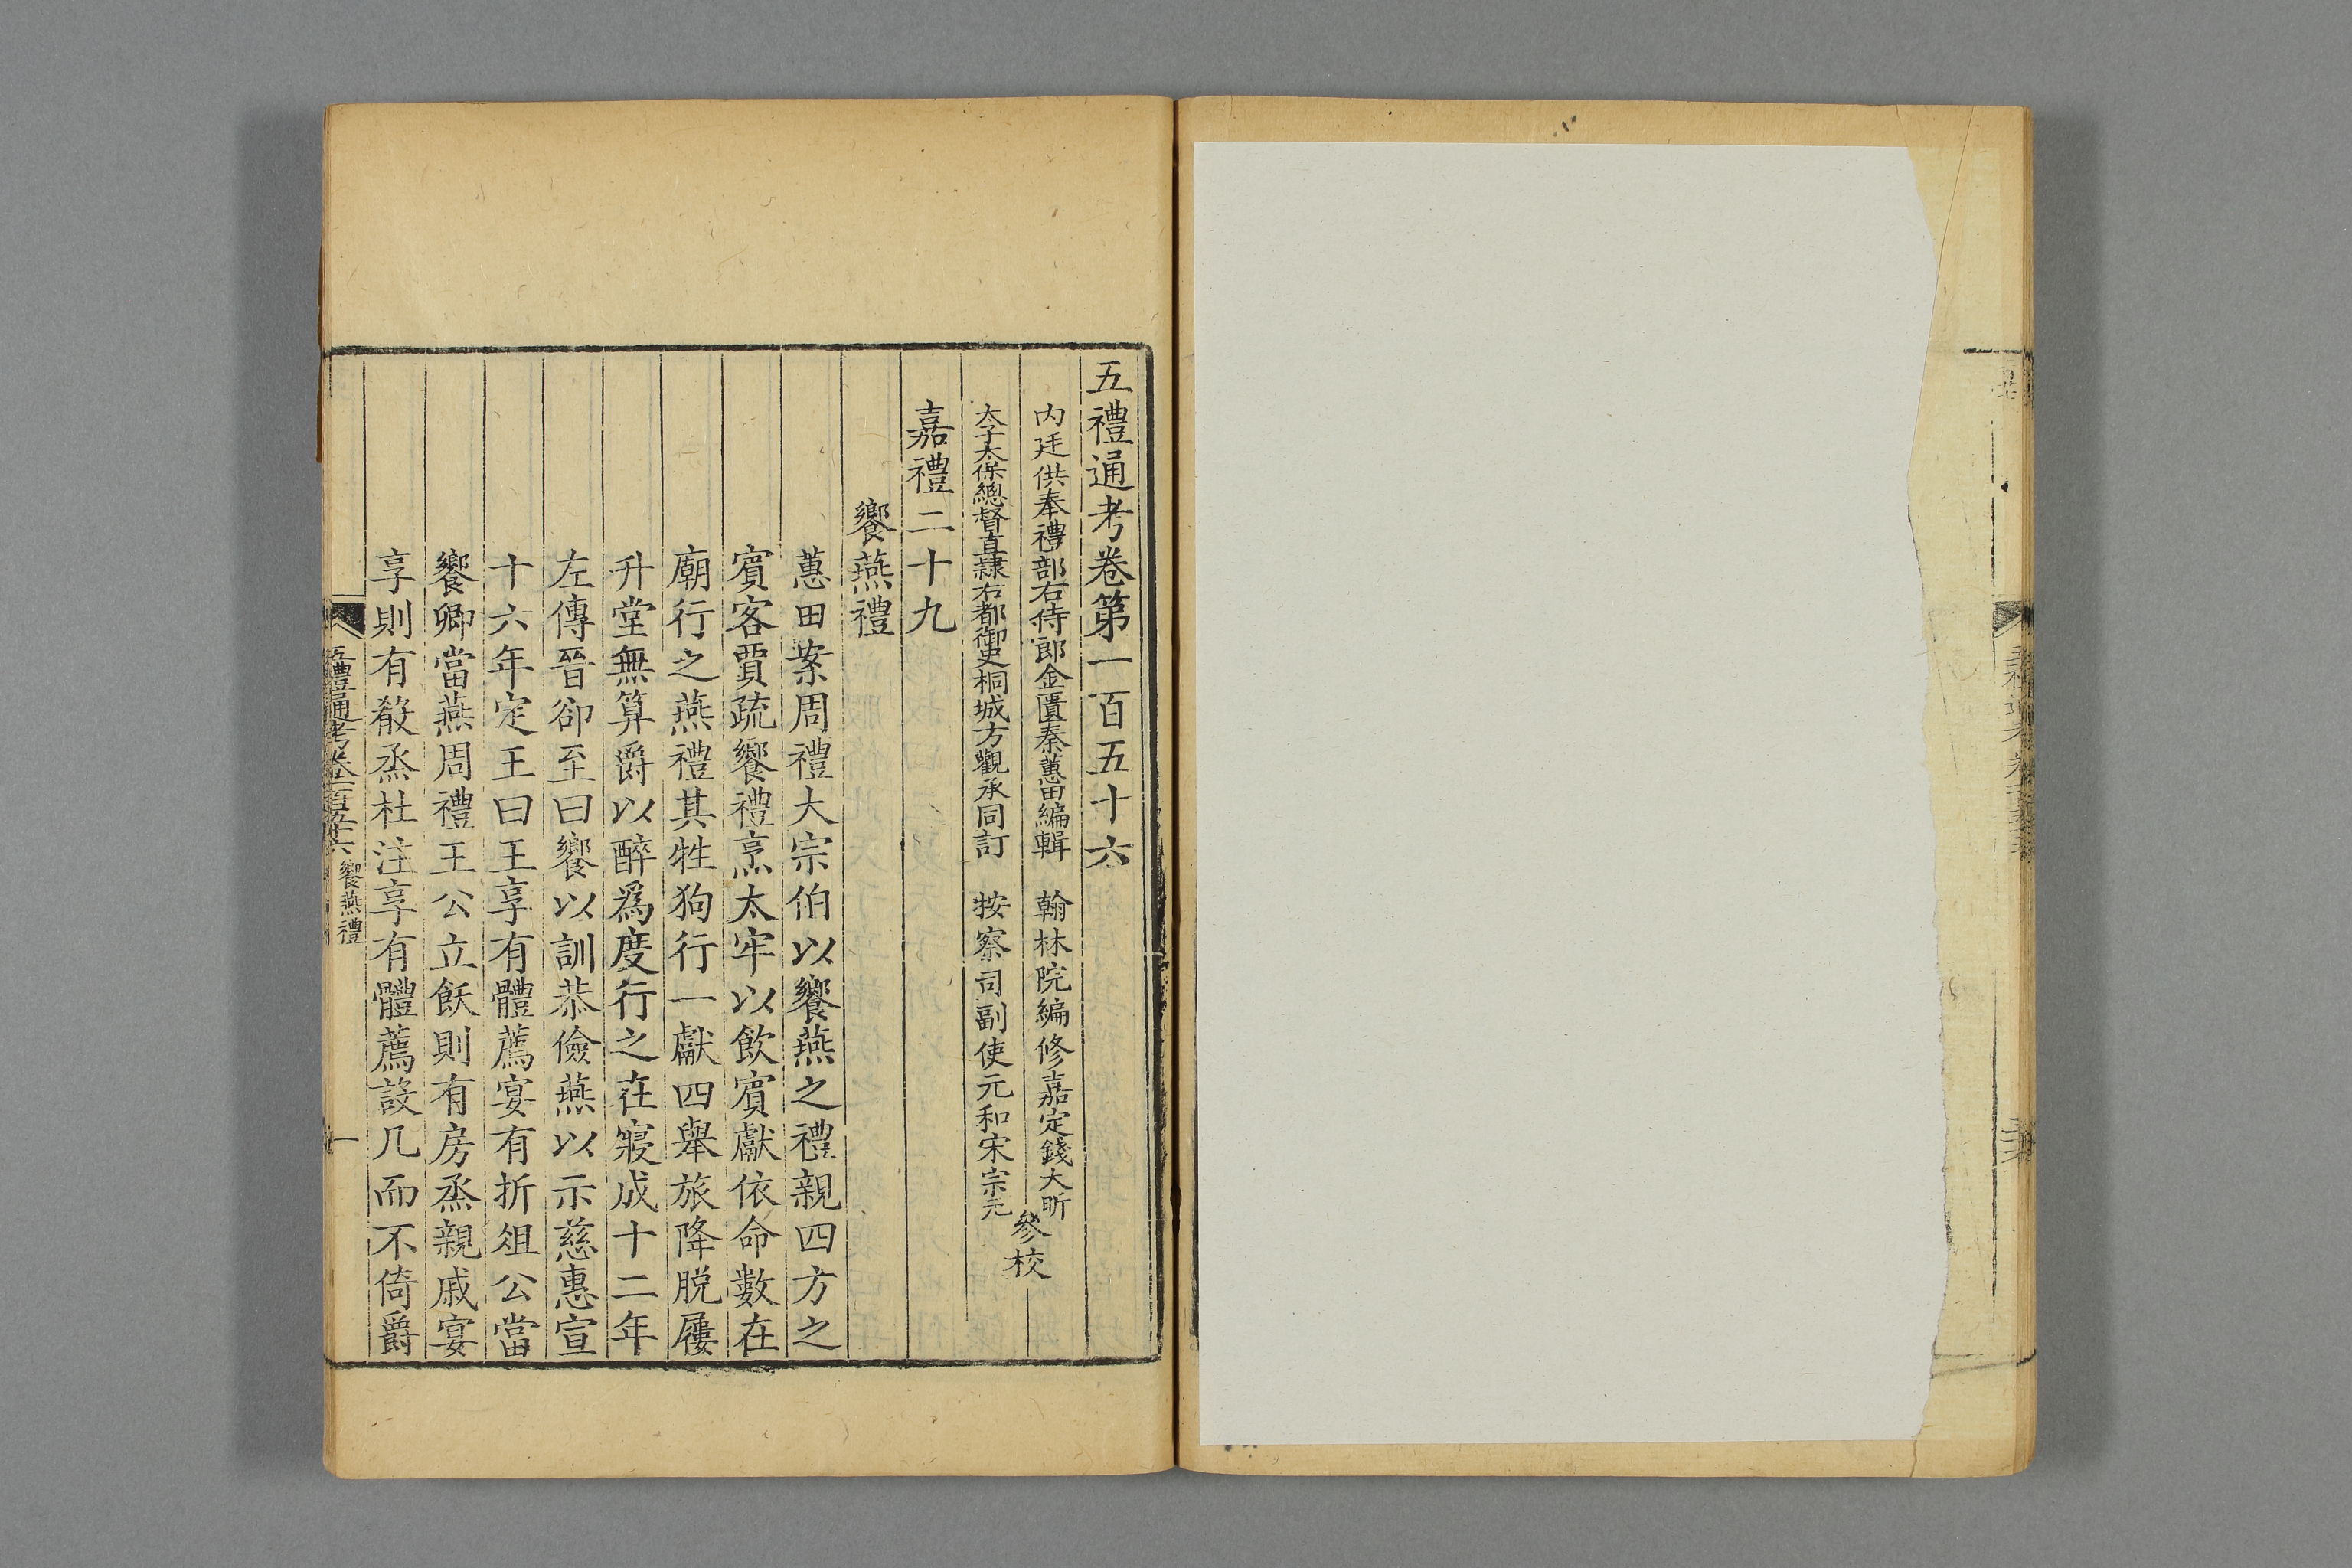 五禮通考卷第一百五十六
內廷供奉禮部右侍郎金匱秦蕙田編輯　翰林院編修嘉定錢大昕
太子太保總督直隸右都御史桐城方觀承同訂　按察司副使元和宋宗元
參校
嘉禮二十九
饗燕禮
蕙田案周禮大宗伯以饗燕之禮親四方之
賓客賈疏饗禮烹太牢以飲賓獻依命數在
廟行之燕禮其牲狗行一獻四舉旅降脫屨
升堂無算爵以醉爲度行之在寢成十二年
左傳晉卻至曰饗以訓恭儉燕以示慈惠宣
十六年定王曰王享有體薦宴有折俎公當
饗卿當燕周禮王公立飫則有房烝親戚宴
享則有殽烝杜注享有體薦設几而不倚爵
五禮通考卷一百五十六 饗燕禮 一